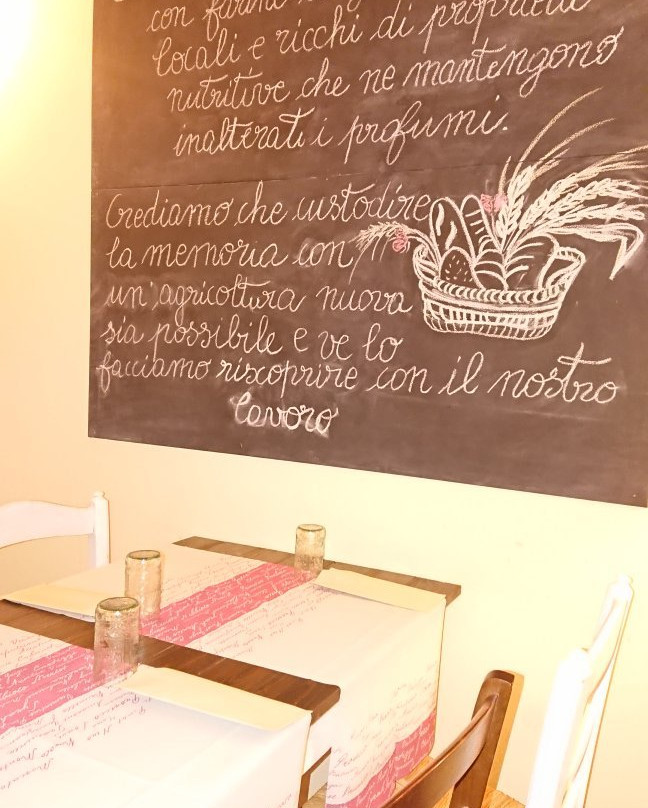 con farine
locali e ricchi di proprietà
nutritive che ne mantengono
inalterati i profumi.
Crediamo che custodire
la memoria con
un'agricoltura nuova
sia possibile e ve lo
facciamo riscoprire con il nostro
lavoro